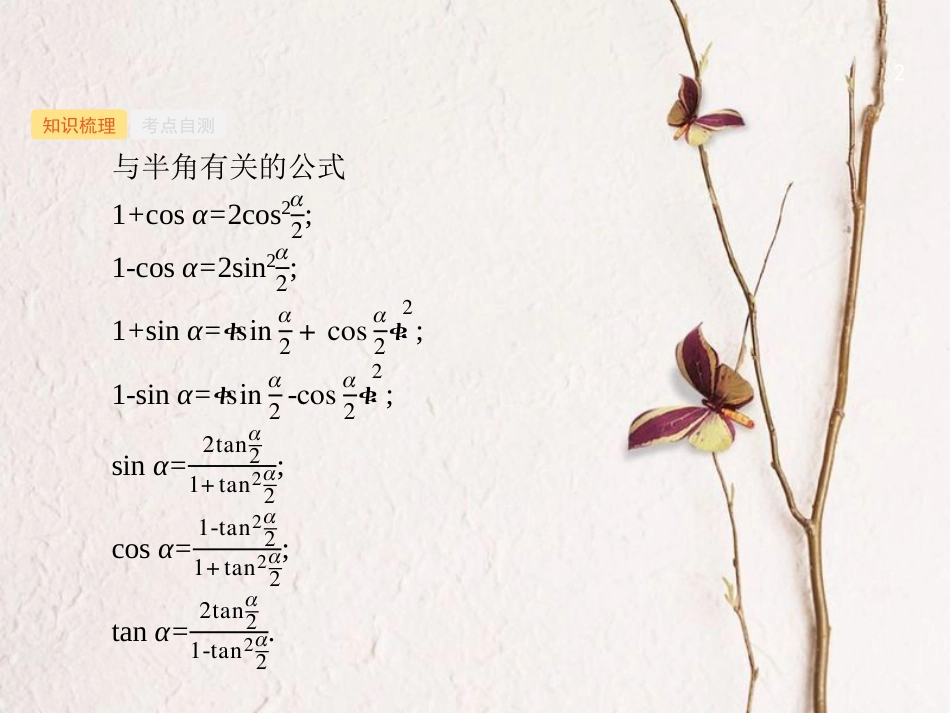 2
知识梳理 考点自测
与半角有关的公式
1+cos α=2cos²α/2;
1-cos α=2sin²α/2;
1+sin α=(sin α/2 + cos α/2)²;
1-sin α=(sin α/2 -cos α/2)²;
sin α=2tan α/2 / 1+tan² α/2;
cos α=1-tan² α/2 / 1+tan² α/2;
tan α=2tan α/2 / 1-tan² α/2.